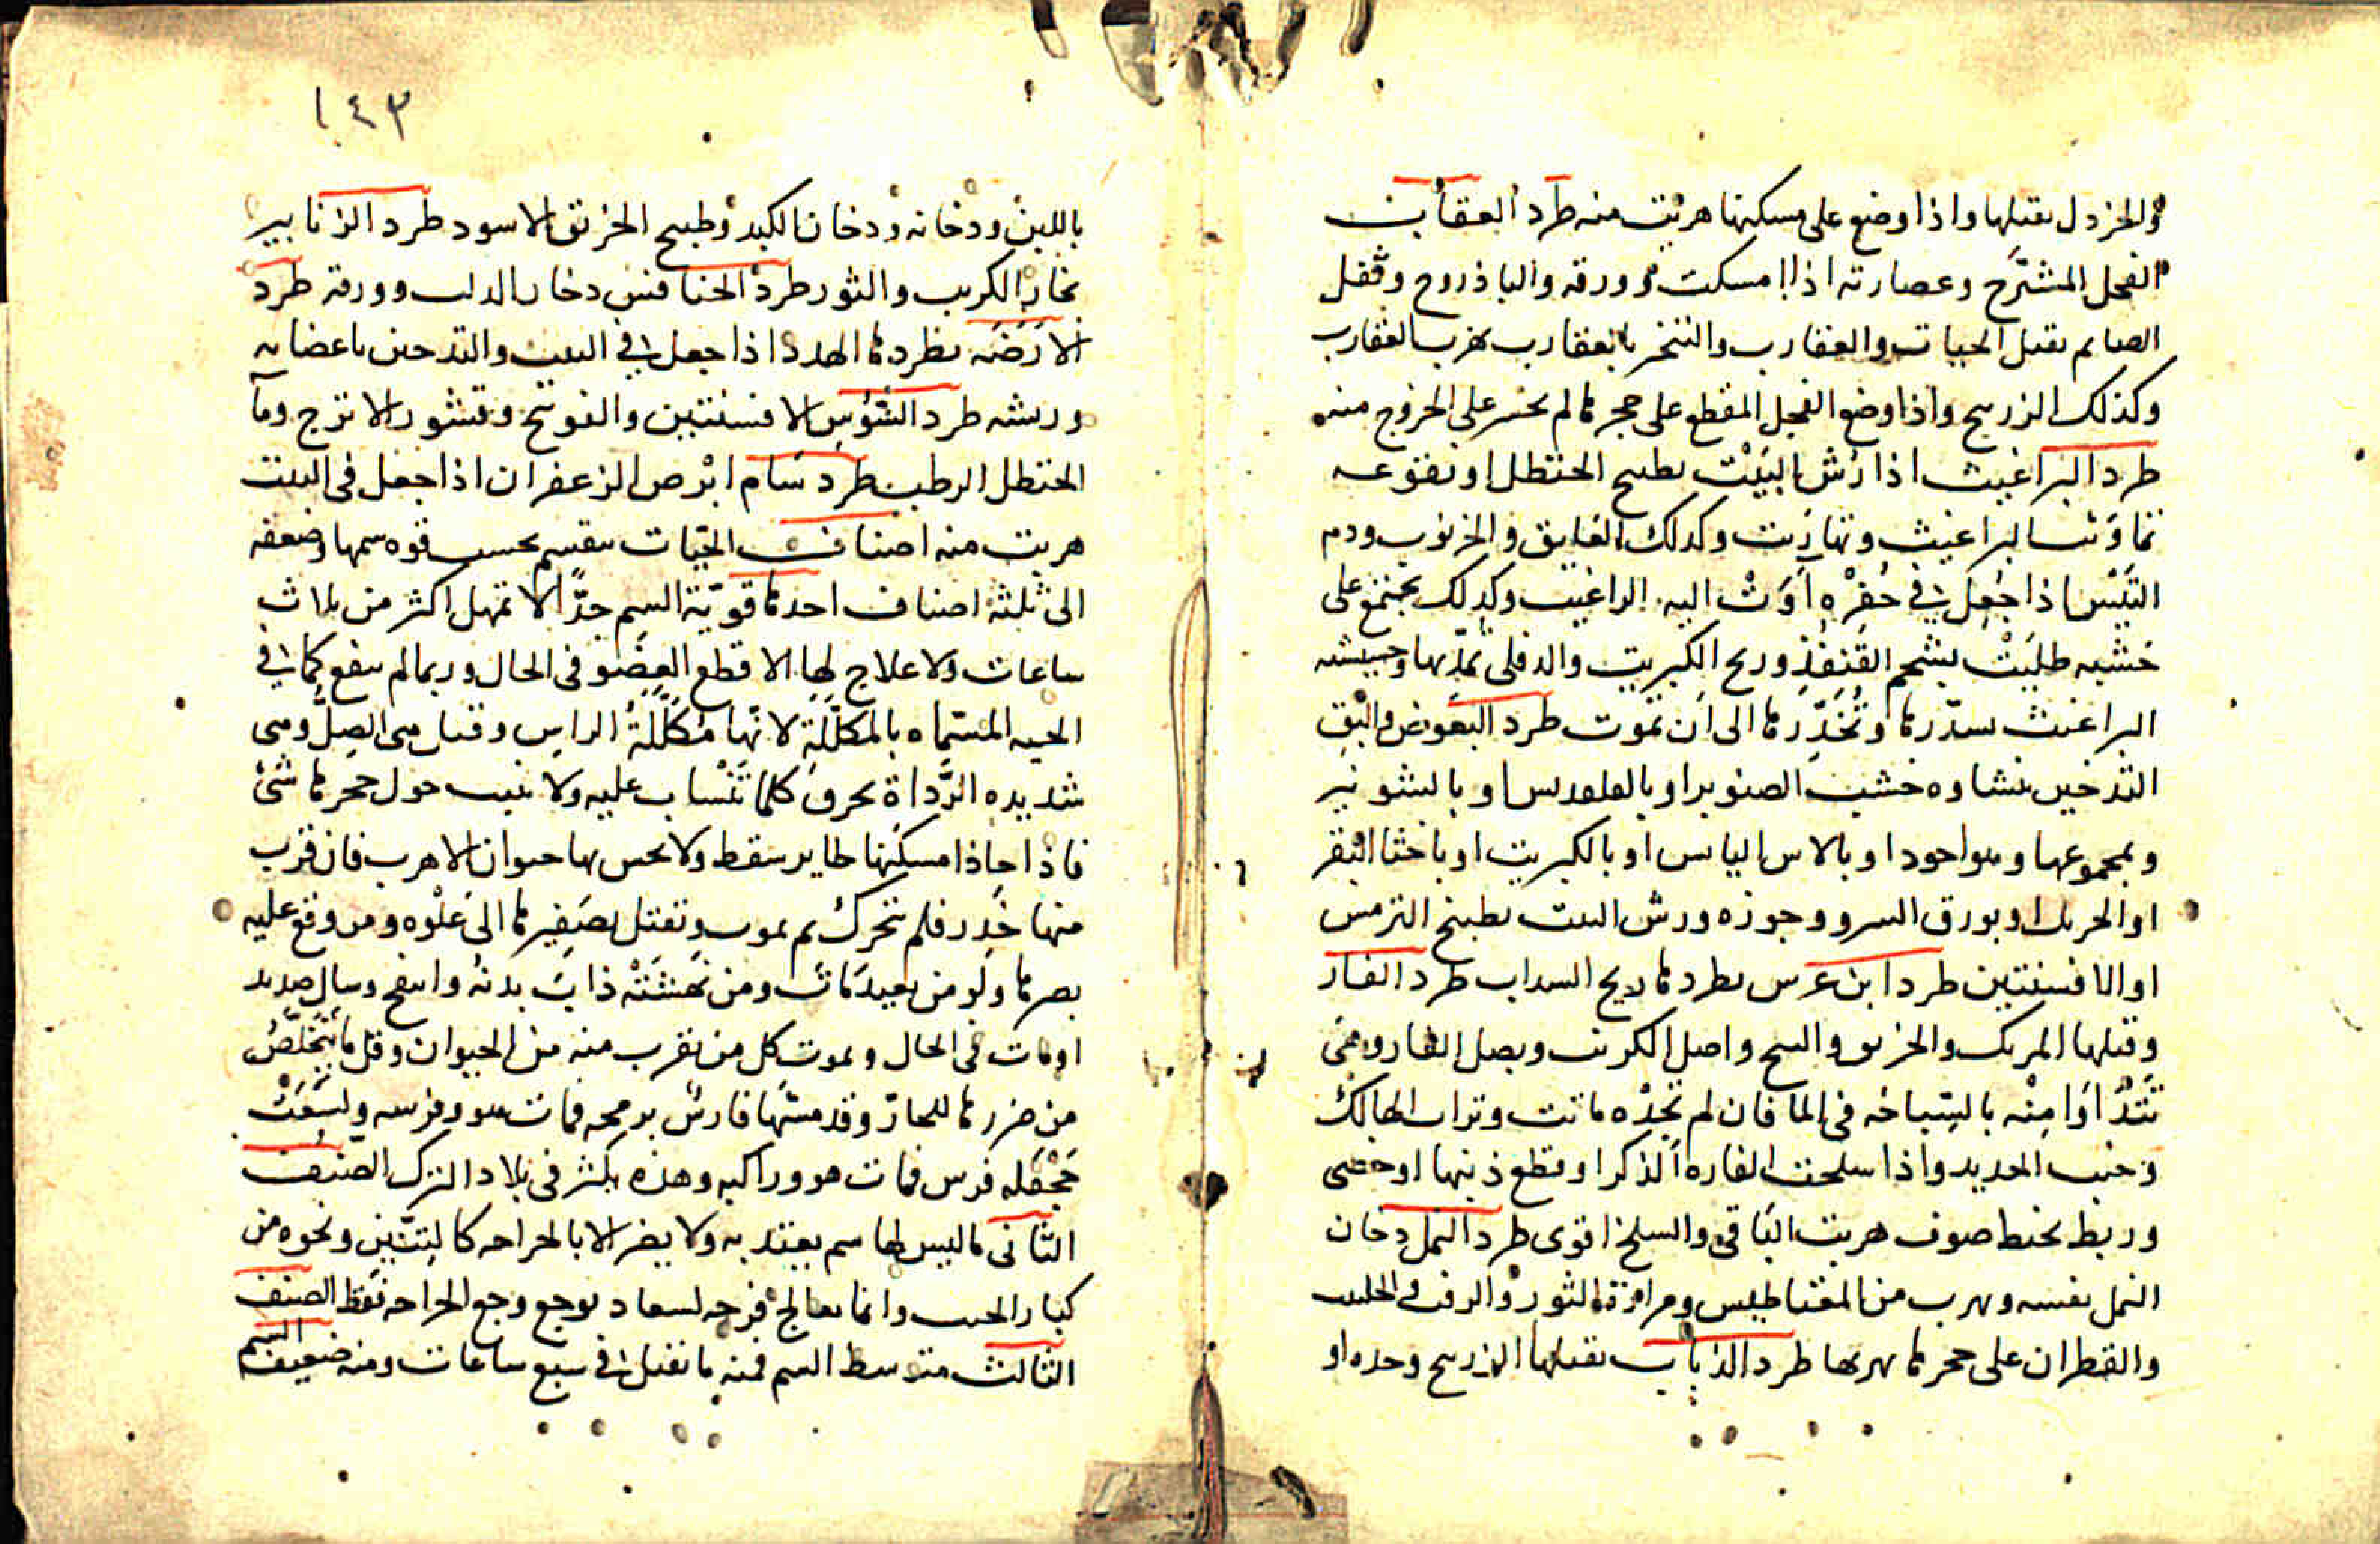 والخردل يقتلها واذا وضع على مسكنها هربت منه طرد العقارب
الفجل المشترح وعصارته اذا امسكت وورقه والباذروج وتفل
الصايم يقتل الحيات والعقارب والتبخر بالعقارب يهرب العقارب
وكذلك الزرنيح واذا وضع الفجل المقطع على جحرها لم تجسر على الخروج منه
طرد البراغيث اذا رُش البَيْت بطبيح الحنظل او نقوعه
تماوتت البراغيث وتهاربت وكذلك العليق والخرنوب ودم
التَيْس اذا جُعل في حُفرْه اَوَتْ اليه البراغيث وكذلك تجتمع على
خشبه طُليَتْ بشحم القُنفذِ وريح الكبريت والدفلى يمدّبها وحشيشه
البراغيث تسدّرها وتُخَدِّرها الى ان تموت طرد البعوض والبَق
التدخين بنشاوه خشب الصنوبر او بالقلقديس او بالشونيز
وبمجموعها وهو اجود او بالاس اليابس او بالكبريت او باخثا البقر
او الحرمل او بورق السرو وجوزه ورش البيت بطبيخ الترمس
او الافسنتين طرد ابن عرس يطردها ريح السداب طرد الفار
وقتلها المرتك والخربق والبنج واصل الكرنب وبصل الفار وهي
تتَدَاوَا مِنْه بالسِّباحَه في الما فان لم تجدْه ماتت وتراب الهالك
وخبث الحديد واذا سلخت الفاره الذكر او قطع ذنبها او خصى
وربط بخيط صوف هربت البَاقي والسلخ اقوى طرد النمل دخان
النمل نفسه ويهرب من المغناطيس ومرارة الثور والزفت والحلتيت
والقطران على جحرها يهربها طرد الذباب يقتلها الزرنيح وحده او
١٤٣
باللبن ودخانه ودخان الكندر وطبيح الخربق الاسود طرد الزنابير
بخار الكبريت والثور طرد الخنافس دخان الدلب وورقه طرد
الاَرَضَه يطردها الهدهد اذا جعل في البيت والتدخين باعضايه
وريشه طرد السُّوس الافسنتين والفوتنج وقشور الاترج ومآ
الحنظل الرطب طرد سَام ابْرص الزعفران اذا جعل في البيت
هربت منه اصناف الحيّات تنقسم بحسب قوه سمها وضعفه
الى ثلثه اصناف احدها قويّة السم جدًّا لا تمهل اكثر من ثلاث
ساعات ولا علاج لها الا قطع العِضو في الحال وربما لم ينفع كما في
الحيه المسَمَّاه بالمكلَّلَةِ لانّها مُكَلَّلَةُ الراس وقيل هي الصِلّ وهي
شديده الرَّدَاة يحرق كلما تَنْساب عليه ولا ينبت حول جحرها شئ
فاذا حاذا مسكنها طاير سقط ولا يحس بها حيوان الا هرب فان قرب
منها خَدِرَ فلم يتحرك ثم يموت وتقتل بصَفيرها الى غلْوه ومن وقع عليه
بصرها ولو من بعيد مَات ومن نَهَشَتْه ذابَ بدنه وانتفح وسال صديد
ا ومات في الحال ويموت كل من يقرب منه من الحيوان وقل ما يَتَخَلّصُ
من ضررها للحارّ وقد مسّها فارسٌ برمحه فمات هو وفرسه ولسعَت
جَحْفَله فرس فمات هو وراكبه وهذه تكثر في بلاد الترك الصنف
الثاني ما ليس لها سم يعتد به ولا يضر الا بالجراحه كالتنّين ونحوه من
كبار الحيات وانما يعالج قرحه لسعها ويوجع وجع الجراحه فقط الصنف
الثالث متوسط السم فمنه ما يقتل في سبع ساعات ومنه ضعيف السم